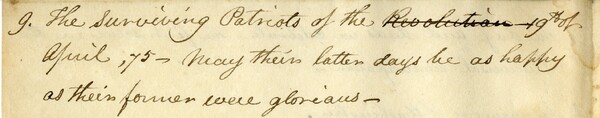 9. The surviving Patriots of the Revolution - 19th of
April, 75 - May their latter days be as happy
as their former were glorious -